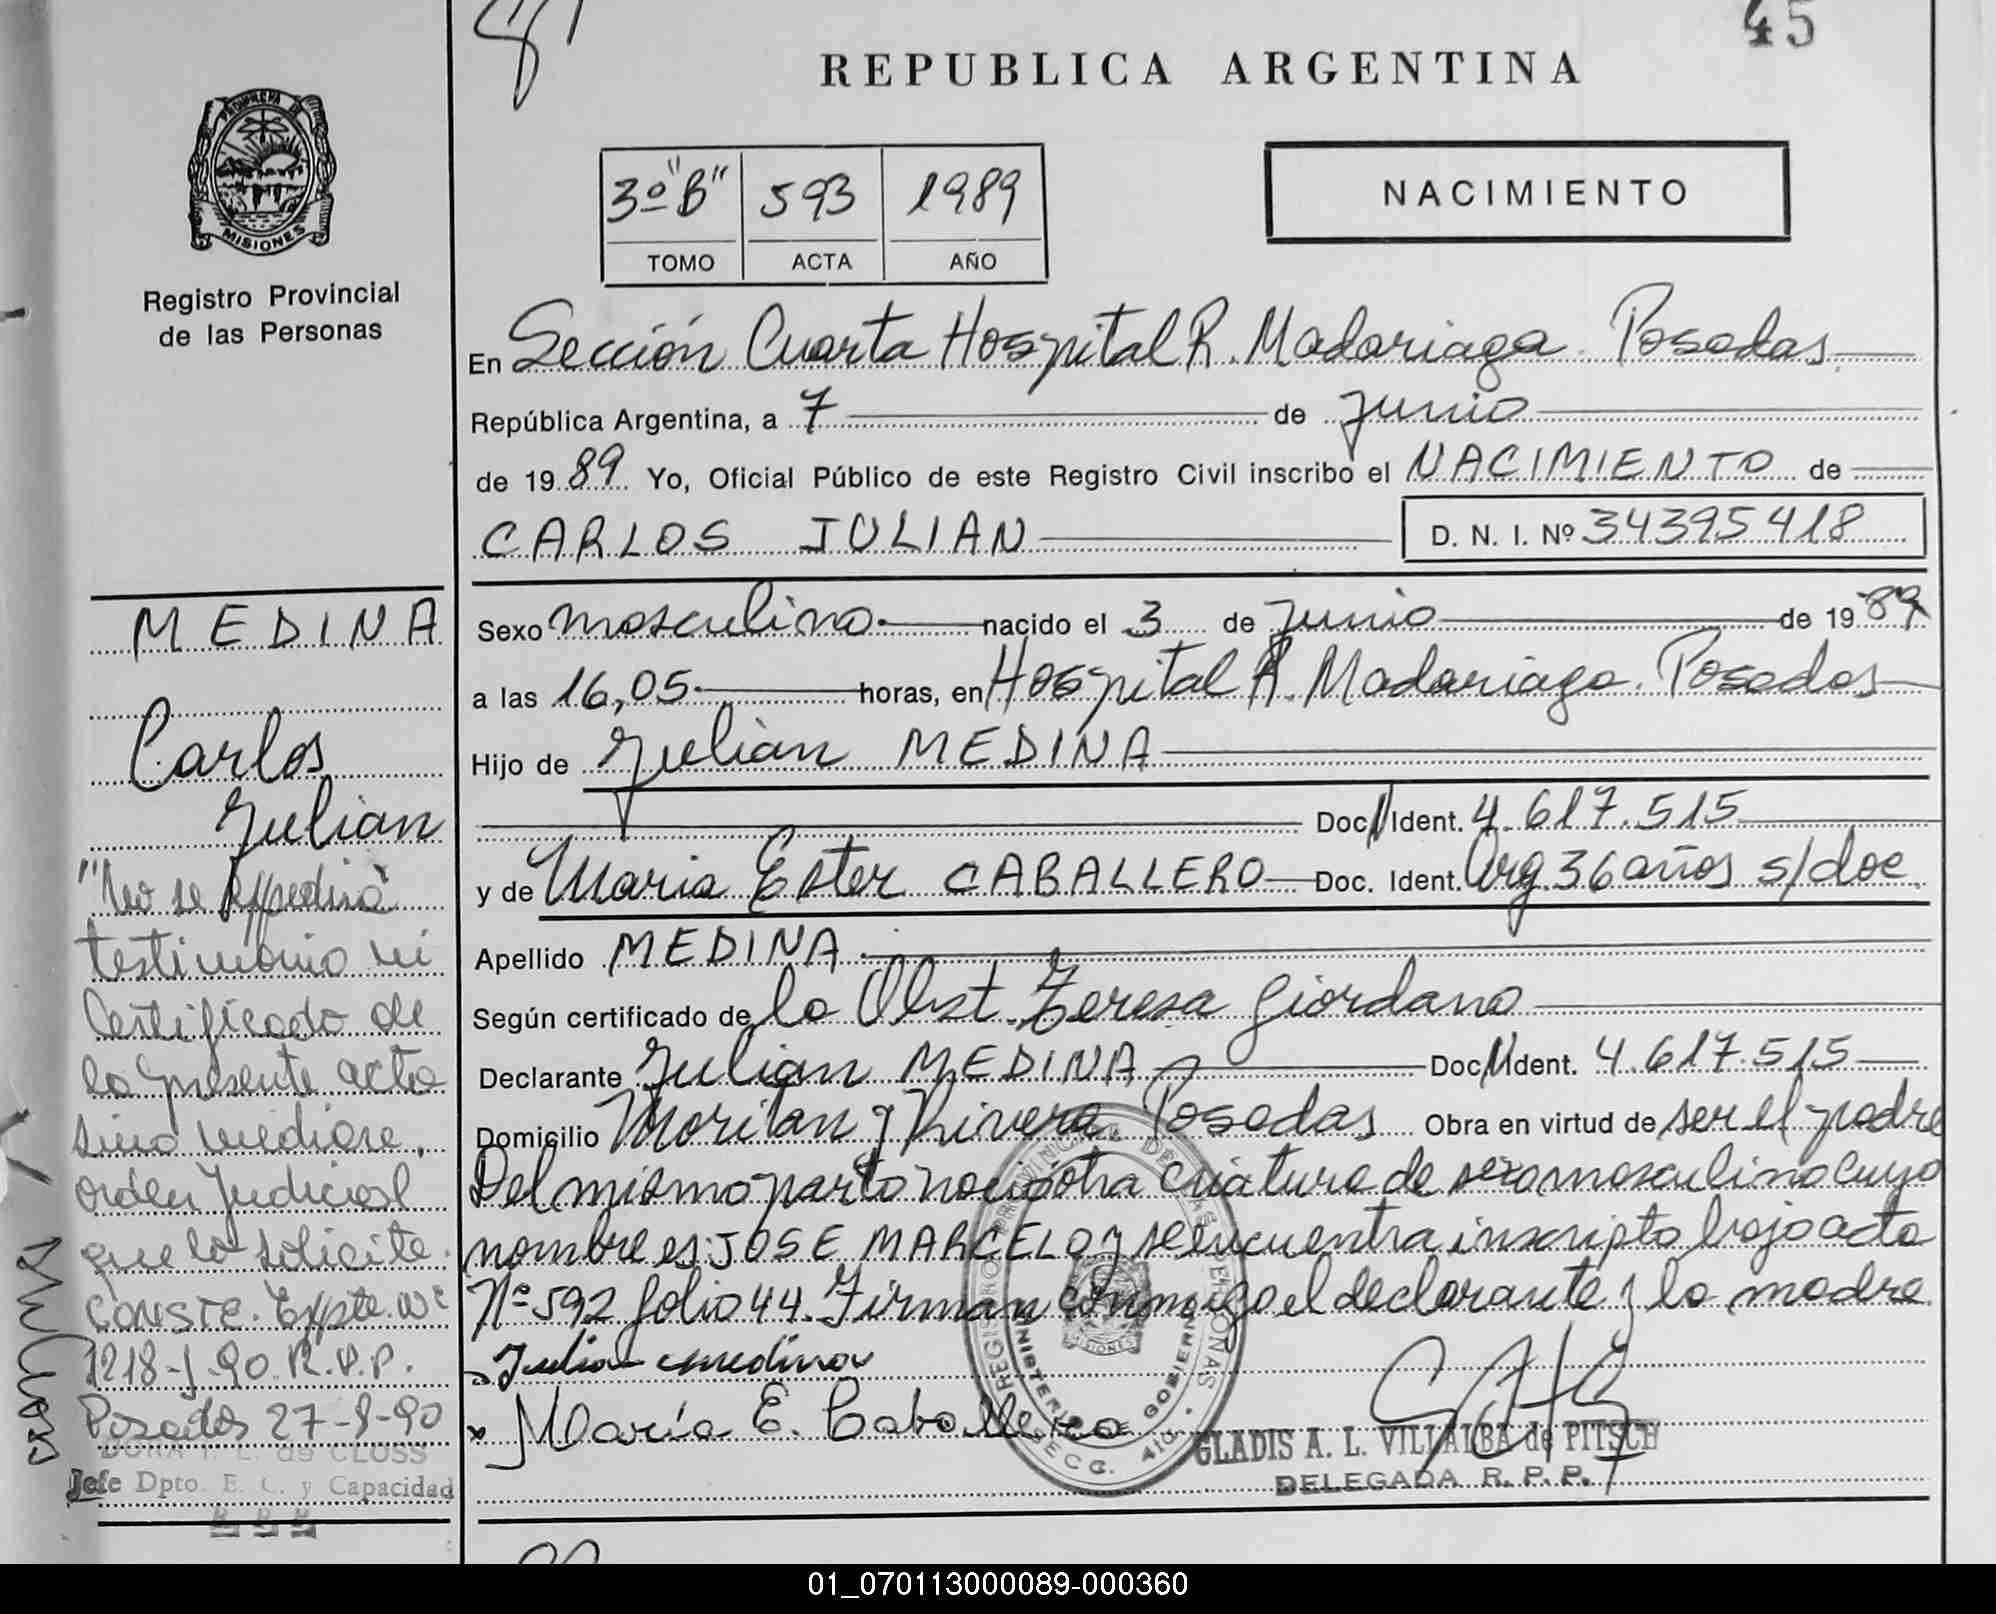 45
REPUBLICA ARGENTINA
PROVINCIA DE
MISIONES
Registro Provincial
de las Personas
3º "B" 593 1989
TOMO ACTA AÑO
NACIMIENTO
En Sección Cuarta Hospital R. Madariaga. Posadas.
República Argentina, a 7 de Junio
de 1989 Yo, Oficial Público de este Registro Civil inscribo el NACIMIENTO de
CARLOS JULIAN D. N. I. Nº 34395418
Sexo masculino. nacido el 3 de Junio de 1989
a las 16,05. horas, en Hospital R. Madariaga. Posadas
Hijo de Julián MEDINA
Doc. Ident. 4.617.515
y de Maria Ester CABALLERO Doc. Ident. Arg. 36 años s/doc.
Apellido MEDINA.
Según certificado de la Obst. Teresa Giordano
Declarante Julián MEDINA Doc. Ident. 4.617.515
Domicilio y Rivera Posadas Obra en virtud de ser el padre
Del mismo parto nació otra criatura de sexo masculino cuyo
nombre es: JOSE MARCELO y se encuentra inscripto bajo acta
Nº 592 folio 44. Firman conmigo el declarante y la madre.
Julian medina
x María E. Caballero
GLADIS A. L. VILLALBA de PITSCH
DELEGADA R. P. P.
REGISTRO PROVINCIAL DE LAS PERSONAS
MINISTERIO DE GOBIERNO
SECC. 4ta.
MEDINA
Carlos
Julián
"No se expedirá
testimonio ni
Certificado de
la presente acta
sino mediare,
orden Judicial
que lo solicite.
CONSTE. Expte. Nº
1218-J-90. R.P.P.
Posadas 27-8-90
de CLOSS
Jefe Dpto. E. C. y Capacidad
R. P. P.
01_070113000089-000360